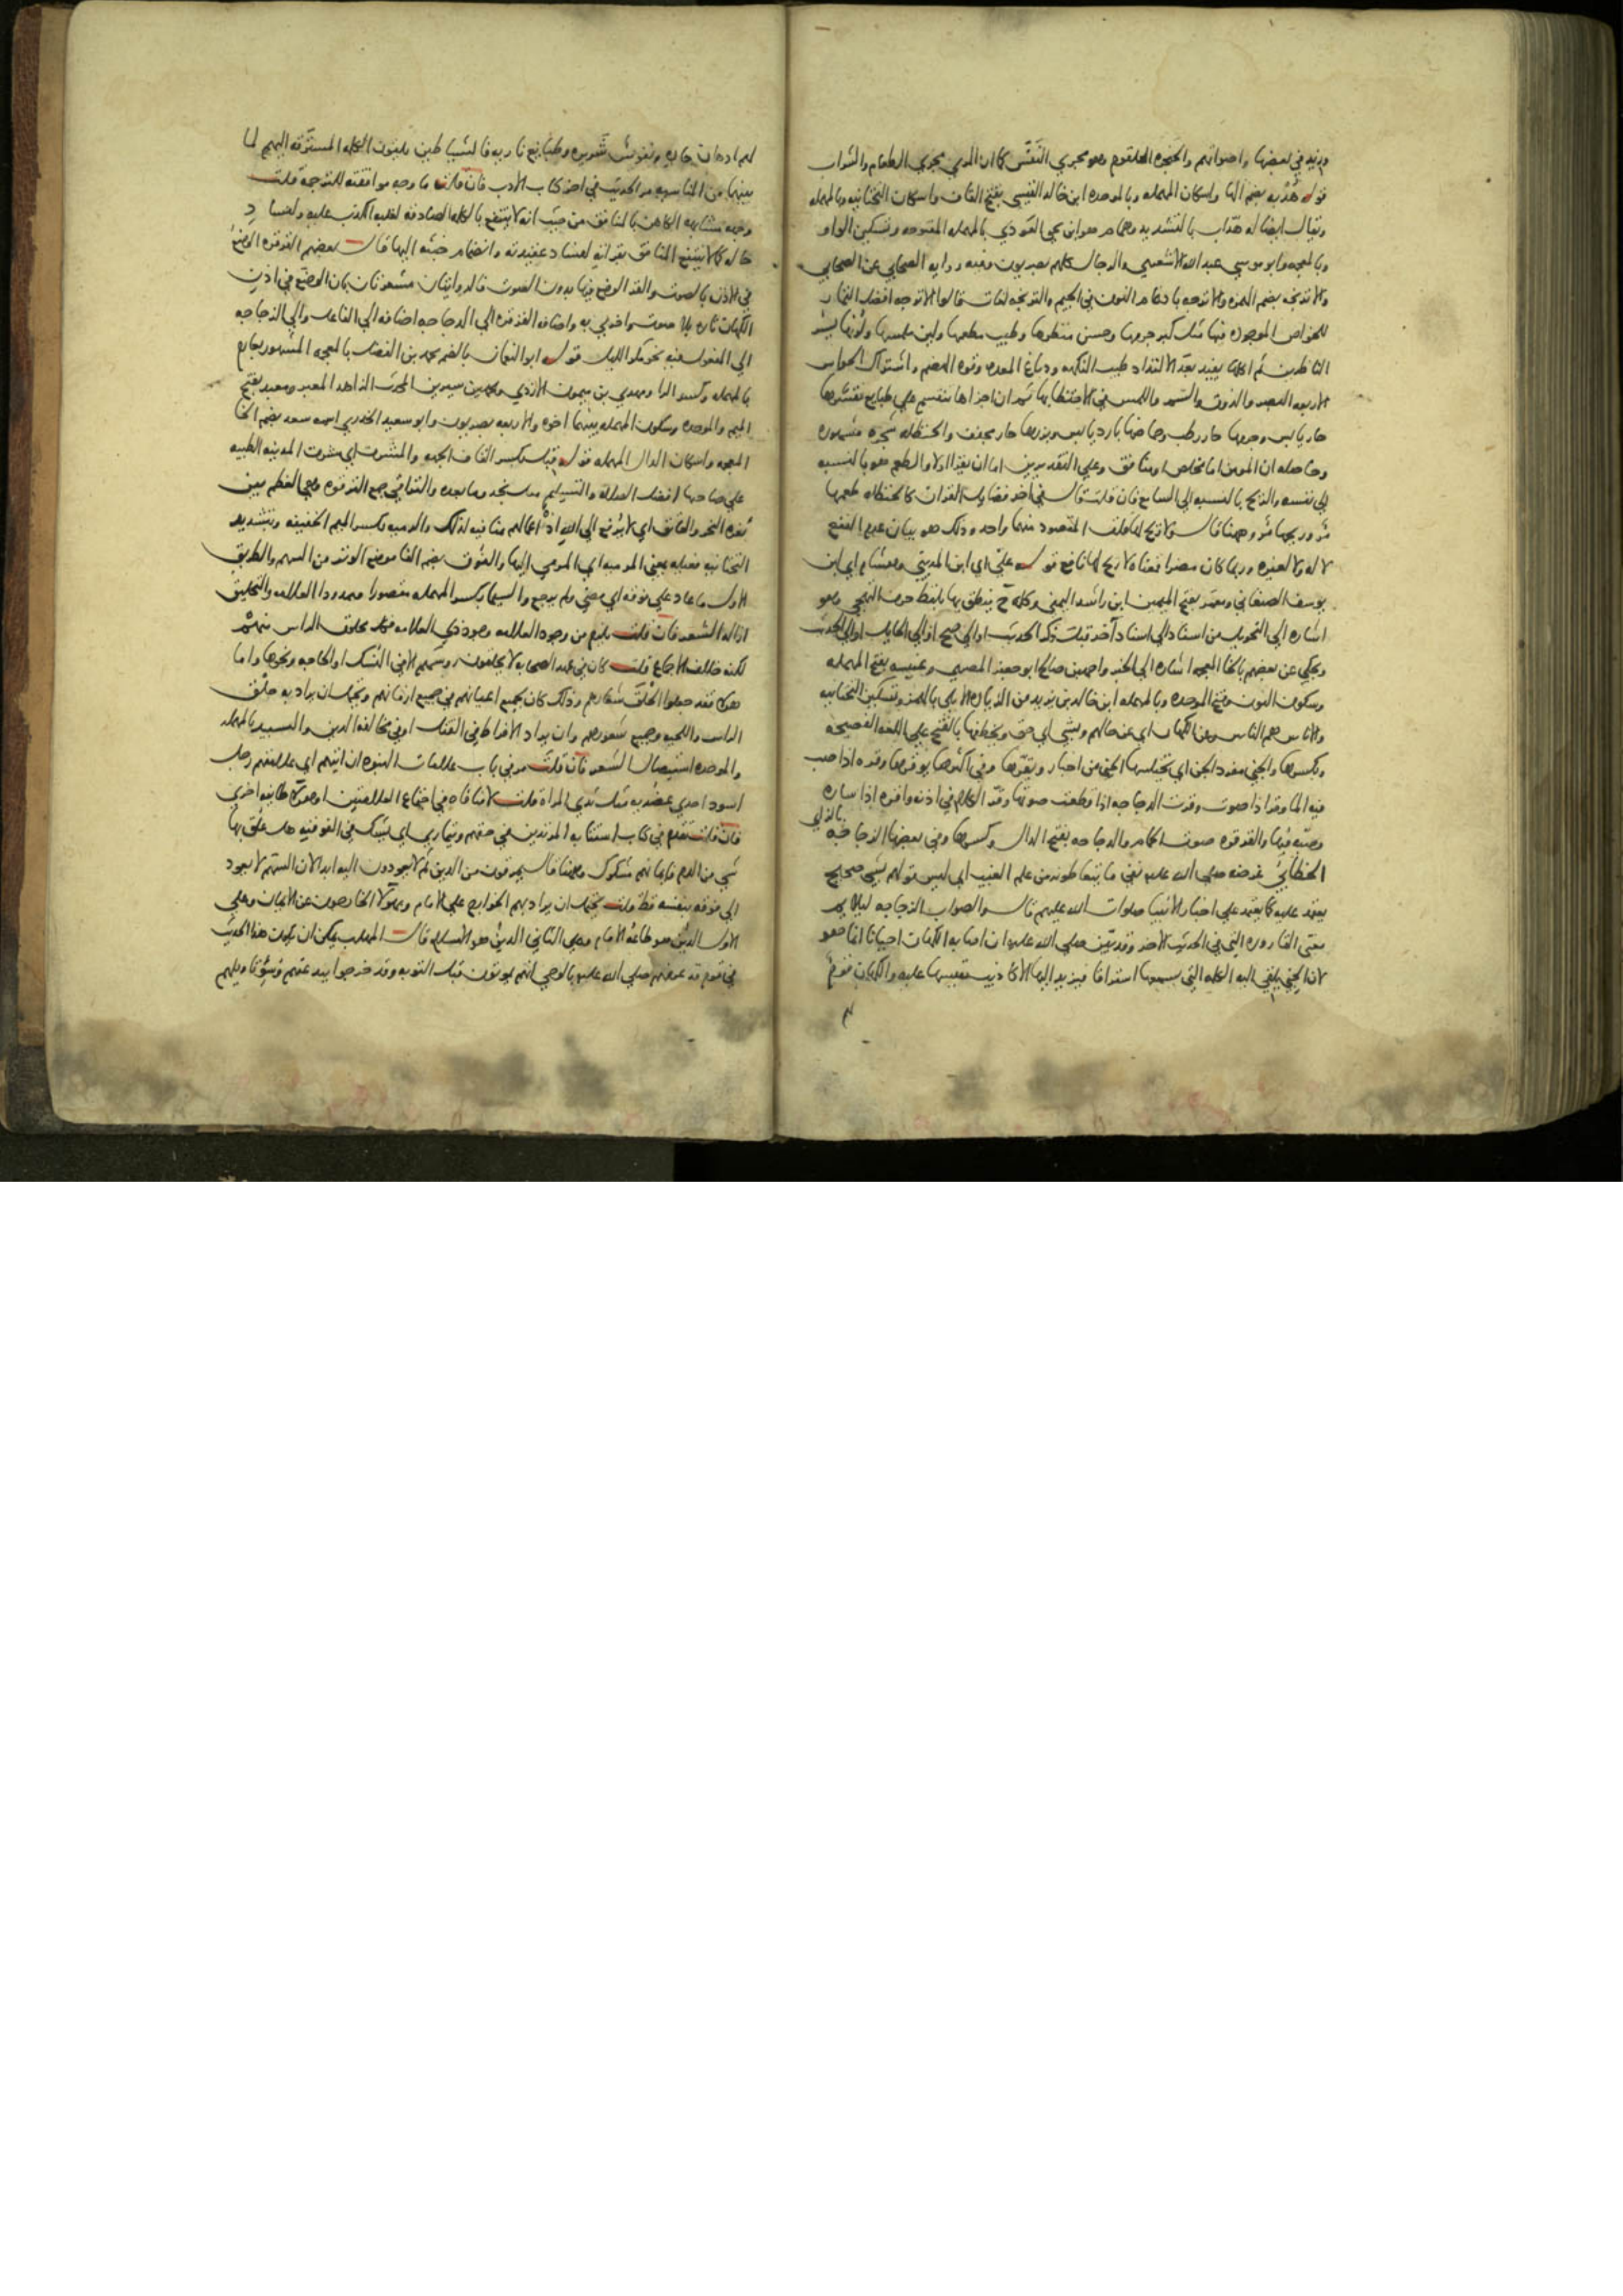 وزيد في بعضها واصواتهم والحنجرة الحلقوم وهو مجري النفس كما ان المري مجري الطعام والشراب
قوله هدبه بضم الها واسكان المهمله وبالموحده ابن خالد القيسي بفتح القاف واسكان التحتانيه وبالمهمله
ويقال ايضا له هداب بالتشديد وهمام هو ابن يحي العوذي بالمهمله المفتوحه وتسكين الواو
وبالمعجمه وابو موسي عبد الله الاشعري والرجال كلهم بصريون وفيه رواية الصحابي عن الصحابي
والاترنجه بضم الهمزه والاترجه بادغام النون في الجيم والترنجه لغات قالوا الاترجه افضل الثمار
للخواص الموجوده فيها مثل كبر جرمها وحسن منظرها وطيب مطعمها ولين ملمسها ولونها يسر
الناظرين ثم اكلها يفيد بعد الالتذاد طيب النكهه ودباغ المعده وقوه الهضم واشتراك الحواس
الاربعه البصر والذوق والشم واللمس في الاحتظا بها ثم ان اجزاها تنقسم علي طبايع فقشرها
حار يابس وجرمها حار رطب وحماضها بارد يابس وبزرها حار مجفف والحنظله شجره مشهوره
وحاصله ان المومن اما مخلص او منافق وعلي التقديرين اما ان يقرا اولا والطعم هو بالنسبه
الي نفسه والريح بالنسبه الي السامع فان قلت قال في اخر فضايل القران كالحنظله طعمها
مر وريحها مر وههنا قال ولا ريح لها قلت المقصود منهما واحد وذلك هو بيان عدم النفع
لا له ولا لغيره وربما كان مضرا فمعناه لا ريح لها نافع قوله علي اي ابن المديني وهشام اي ابن
يوسف الصنعاني ومعمر بفتح الميمين ابن راشد اليمني وكلمه ح ينطق بها بلفظ حرف التهجي وهو
اشاره الي التحويل من اسناد الي اسناد آخر قبل ذكر الحديث او الي صح او الي الحايل او الي الحديث
ويحكي عن بعضهم بالخا المعجمه اشاره الي الخبر واحمد بن صالح ابو جعفر المصري وعنبسه بفتح المهمله
وسكون النون وفتح الموحده وبالمهمله ابن خالد بن يزيد من الزياده الايلي بالهمز وتسكين التحتانيه
والاناس هم الناس وعن الكهان اي عن حالهم وبشي اي حق ويخطفها بالفتح علي اللغه الفصيحه
وبكسرها والجني مفرد الجن اي يختلسها الجني من اخبار ويقرها وفي اكثرها يوقرها وقره اذا صب
فيه الما وقر اذا صوت وقرت الدجاجه اذا قطعت صوتها وقر الكلام في اذنه واقره اذا ساره
وصبه فيها والقرقره صوت الحمام والدجاجه بفتح الدال وكسرها وفي بعضها الزجاجه
بالزاي
الخطابي غرضه صلي الله عليه نفي ما يتعاطونه من علم الغيب اي ليس قولهم بشي صحيح
يعتمد عليه كما يعتمد علي اخبار الانبيا صلوات الله عليهم قال والصواب الزجاجه ليلايم
معني القاروره التي في الحديث الاخر وقد بين صلي الله عليه ان اصابه الكهان احيانا انما هو
لان الجني يلقي اليه الكلمه التي يسمعها استراقا فيزيد اليها الاكاذيب فقيسها عليه والكهان قوم
لهم اذهان حاده ونفوس شريره وطبايع ناريه فالشياطين يلقون الكلمه المسترقه اليهم لما
بينهما من المناسبه مر الحديث في اخر كتاب الادب فان قلت ما وجه موافقته للترجمه قلت
وجه مشابهه الكاهن بالمنافق من حيث انه لا ينتفع بالكلمه الصادقه لغلبه الكذب عليه ولفساد
حاله كما لا ينتفع المنافق بقرائته لفساد عقيدته وانضمام خبثه اليها قال بعضهم القرقره الوضع
في الاذن بالصوت والقر الوضع فيها بدون الصوت فالروايتان مشعرتان بان الوضع في اذن
الكهان تاره بلا صوت واخري به واضافه القرقره الي الدجاجه اضافه الي الفاعل والي الزجاجه
الي المفعول فيه نحو مكر الليل قوله ابو النعمان بالضم محمد بن الفضل بالمعجمه المشهور بعارم
بالمهمله وكسر الرا ومهدي بن ميمون الازدي ومحمد بن سيرين المحدث الزاهد المعبر ومعبد بفتح
الميم والموحده وسكون المهمله بينهما اخوه والاربعه بصريون وابو سعيد الخدري اسمه سعد بضم الخا
المعجمه واسكان الدال المهمله قوله قبل بكسر القاف الجهه والمشرق اي مشرق المدينه الطيبه
علي صاحبها افضل الصلاه والتسليم مثل نجد وما بعده والتراقي جمع الترقوه وهي العظم بين
ثغره النحر والعاتق اي لا يرفع الي الله اذ اعمالهم منافيه لذلك والرميه بكسر الميم الخفيفه وتشديد
التحتانيه فعيله بمعني المرميه اي المرمي اليها والفوق بضم الفا موضع الوتر من السهم والطريق
الاول ما عاد علي فوقه اي مضي ولم يرجع والسيما بكسر المهمله مقصورا وممدودا العلامه والتحليق
ازاله الشعر فان قلت يلزم من وجود العلامه وجود ذي العلامه فكل محلوق الراس منهم
لكنه خلاف الاجماع قلت كان في عهد الصحابه لا يحلقون روسهم الا في النسك او الحاجه ونحوها واما
هولا فقد جعلوا الحلق شعارهم وذلك كان لجميع اعيانهم في جميع ازمانهم ويحتمل ان يراد به حلق
الراس واللحيه وجميع شعورهم وان يراد الافراط في القتل او في مخالفه الدين والتسبيد بالمهمله
والموحده استيصال الشعر فان قلت مر في باب علامات النبوه ان ايتهم اي علامتهم رجل
اسود احدي عضديه مثل ثدي المراه قلت لا منافاه في اجتماع العلامتين او هولا طايفه اخري
فان قلت تقدم في كتاب استتابه المرتدين في حقهم ويتماري اي يشك في الفوقه هل علق بها
شي من الدم فايمانهم مشكوك وههنا قال يمرقون من الدين ثم لا يعودون اليه ابدا لان السهم لا يعود
الي فوقه بنفسه قط قلت يحتمل ان يراد بهم الخوارج علي الامام وبهولا الخارجون عن الايمان وعلي
الاول الدين هو طاعه الامام وعلي الثاني الدين هو الاسلام قال المهلب يمكن ان يكون هذا الحديث
في قوم قد عرفهم صلي الله عليه بالوحي انهم يموتون قبل التوبه وقد خرجوا ببدعتهم وسوء تاويلهم